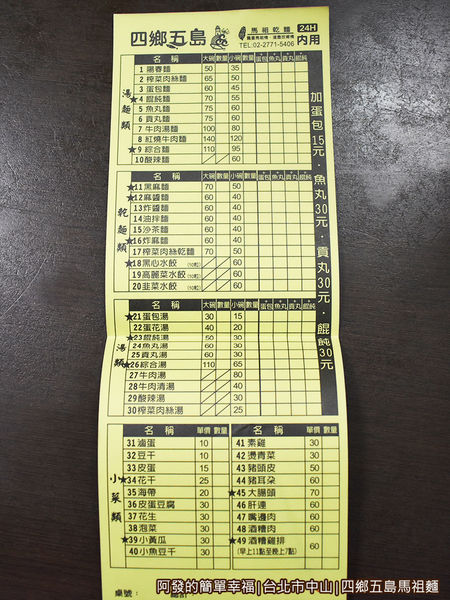 四鄉五島 馬祖乾麵 24H 內用
TEL:02-2771-5406
加蛋包15元·魚丸30元·貢丸30元·餛飩30元
湯麵類
名稱 大碗 數量 小碗 數量 +蛋包 +魚丸 +貢丸 +餛飩
1 陽春麵 50 35
2 榨菜肉絲麵 65 50
3 蛋包麵 60 50
★4 餛飩麵 70 55
5 魚丸麵 75 60
6 貢丸麵 75 60
7 牛肉湯麵 100 80
8 紅燒牛肉麵 140 120
★9 綜合麵 110 95
10 酸辣麵 60
乾麵類
名稱 大碗 數量 小碗 數量 +蛋包 +魚丸 +貢丸 +餛飩
★11 黑麻麵 70 50
★12 麻醬麵 60 40
13 炸醬麵 60 40
14 油拌麵 60 40
15 沙茶麵 60 40
★16 炸麻麵 60 40
17 榨菜肉絲乾麵 70 50
★18 黑心水餃 (10粒) 60
19 高麗菜水餃 (10粒) 60
20 韭菜水餃 (10粒) 60
湯類
名稱 大碗 數量 小碗 數量 +蛋包 +魚丸 +貢丸 +餛飩
★21 蛋包湯 30 15
22 蛋花湯 40 20
★23 餛飩湯 50 30
24 魚丸湯 60 30
25 貢丸湯 60 30
★26 綜合湯 110 65
27 牛肉湯 80
28 牛肉清湯 40
29 酸辣湯 30
30 榨菜肉絲湯 25
小菜類
名稱 單價 數量 名稱 單價 數量
31 滷蛋 10 ★41 素雞 30
32 豆干 10 42 燙青菜 30
33 皮蛋 15 ★43 豬頭皮 50
★34 花干 25 44 豬耳朵 60
35 海帶 20 ★45 大腸頭 70
36 皮蛋豆腐 30 46 肝連 60
37 花生 30 47 嘴邊肉 60
38 泡菜 30 48 酒糟肉 60
★39 小黃瓜 30 ★49 酒糟雞排 60
40 小魚豆干 30 (早上11點至晚上7點)
桌號:
阿發的簡單幸福|台北市中山|四鄉五島馬祖麵